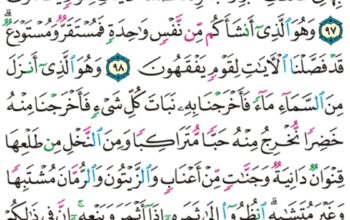 ۝٩٧ وَهُوَ ٱلَّذِىٓ أَنشَأَكُم مِّن نَّفْسٍ وَٰحِدَةٍ فَمُسْتَقَرٌّ وَمُسْتَوْدَعٌ
قَدْ فَصَّلْنَا ٱلْءَايَٰتِ لِقَوْمٍ يَفْقَهُونَ ۝٩٨ وَهُوَ ٱلَّذِىٓ أَنزَلَ
مِنَ ٱلسَّمَآءِ مَآءً فَأَخْرَجْنَا بِهِۦ نَبَاتَ كُلِّ شَىْءٍ فَأَخْرَجْنَا مِنْهُ
خَضِرًا نُّخْرِجُ مِنْهُ حَبًّا مُّتَرَاكِبًا وَمِنَ ٱلنَّخْلِ مِن طَلْعِهَا
قِنْوَانٌ دَانِيَةٌ وَجَنَّٰتٍ مِّنْ أَعْنَابٍ وَٱلزَّيْتُونَ وَٱلرُّمَّانَ مُشْتَبِهًا
وَغَيْرَ مُتَشَٰبِهٍ ٱنظُرُوٓا۟ إِلَىٰ ثَمَرِهِۦٓ إِذَآ أَثْمَرَ وَيَنْعِهِۦٓ إِنَّ فِى ذَٰلِكُمْ